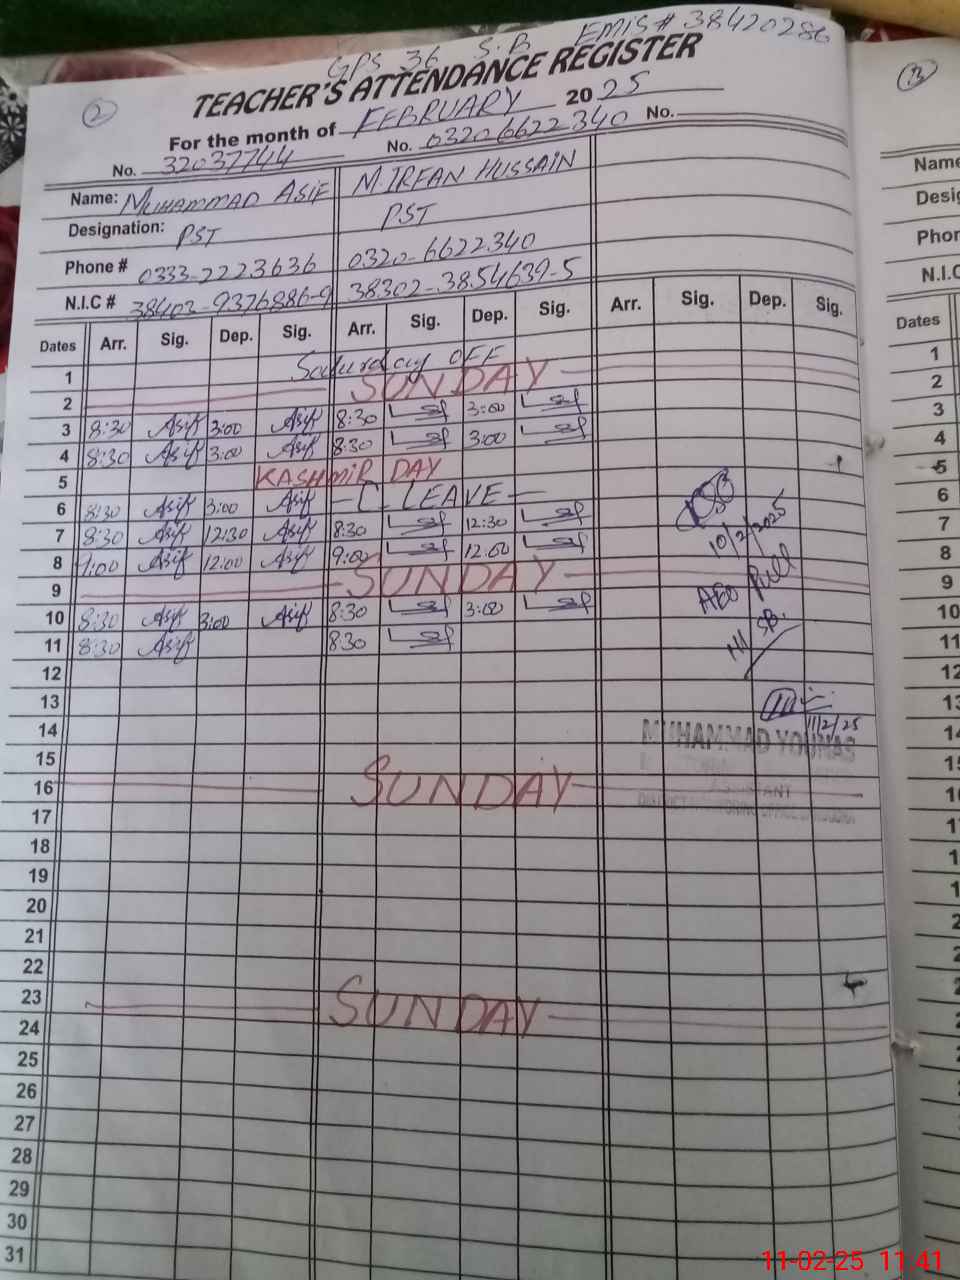 GPS 36 S.B EMIS# 38420286
2
TEACHER'S ATTENDANCE REGISTER
For the month of FEBRUARY 2025
No. 32037744 No. 03206622340 No.
Name: MUHAMMAD ASIF M.IRFAN HUSSAIN
Designation: PST PST
Phone # 0333-2223636 0320-6622340
N.I.C # 38403-9376886-9 38302-3854639-5
Dates Arr. Sig. Dep. Sig. Arr. Sig. Dep. Sig. Arr. Sig. Dep. Sig.
1 Saturday OFF
2 SUNDAY
3 8:30 Asif 3:00 Asif 8:30 3:00
4 8:30 Asif 3:00 Asif 8:30 3:00
5 KASHMIR DAY
6 8:30 Asif 3:00 Asif C LEAVE
7 8:30 Asif 12:30 Asif 8:30 12:30
8 9:00 Asif 12:00 Asif 9:00 12:00
9 SUNDAY
10 8:30 Asif 3:00 Asif 8:30 3:00
11 8:30 Asif 8:30
12
13
14
15
16 SUNDAY
17
18
19
20
21
22
23 SUNDAY
24
25
26
27
28
29
30
31
10/2/2025
AEO
SB.
11/2/25
MUHAMMAD YOUNAS
ASSISTANT
Name
Desig
Phon
N.I.C
Dates
1
2
3
4
5
6
7
8
9
10
11
12
13
11-02-25 11:41